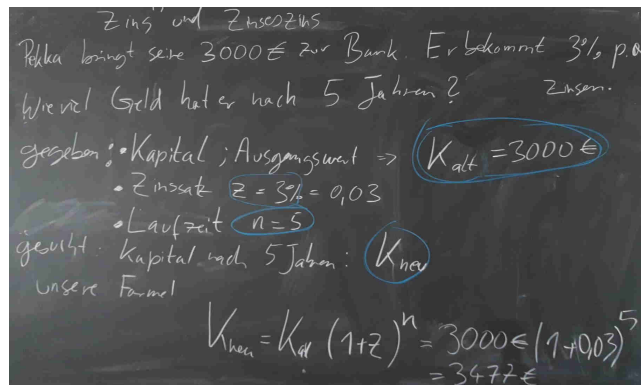 Zins und Zinseszins
Pekka bringt seine 3000 € zur Bank. Er bekommt 3% p.a
Wieviel Geld hat er nach 5 Jahren? Zinsen.
gegeben: • Kapital ; Ausgangswert => K alt = 3000 €
• Zinssatz z = 3% = 0,03
• Laufzeit n = 5
gesucht: Kapital nach 5 Jahren: K neu
unsere Formel
K neu = K alt (1+z)^n = 3000 € (1+0,03)^5
= 3477 €